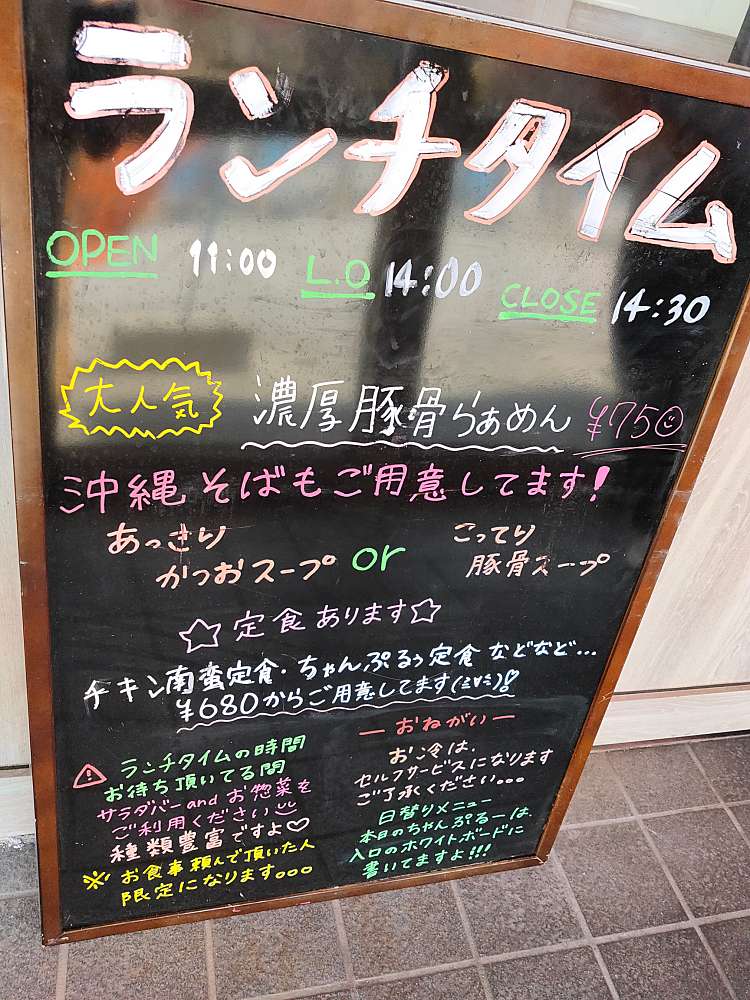 ランチタイム
OPEN 11:00 L.O 14:00 CLOSE 14:30
大人気 濃厚豚骨らぁめん ¥750
沖縄そばもご用意してます!
あっさり
かつおスープ or こってり
豚骨スープ
☆定食あります☆
チキン南蛮定食・ちゃんぷるぅ定食 などなど…
¥680からご用意してます
ランチタイムの時間
お待ち頂いてる間
サラダバーandお惣菜を
ご利用ください
種類豊富ですよ♡
※お食事頼んで頂いた人
限定になります。。。
ーおねがいー
お冷は、
セルフサービスになります
ご了承ください。。。
日替りメニュー
本日のちゃんぷるーは、
入口のホワイトボードに
書いてますよ!!!